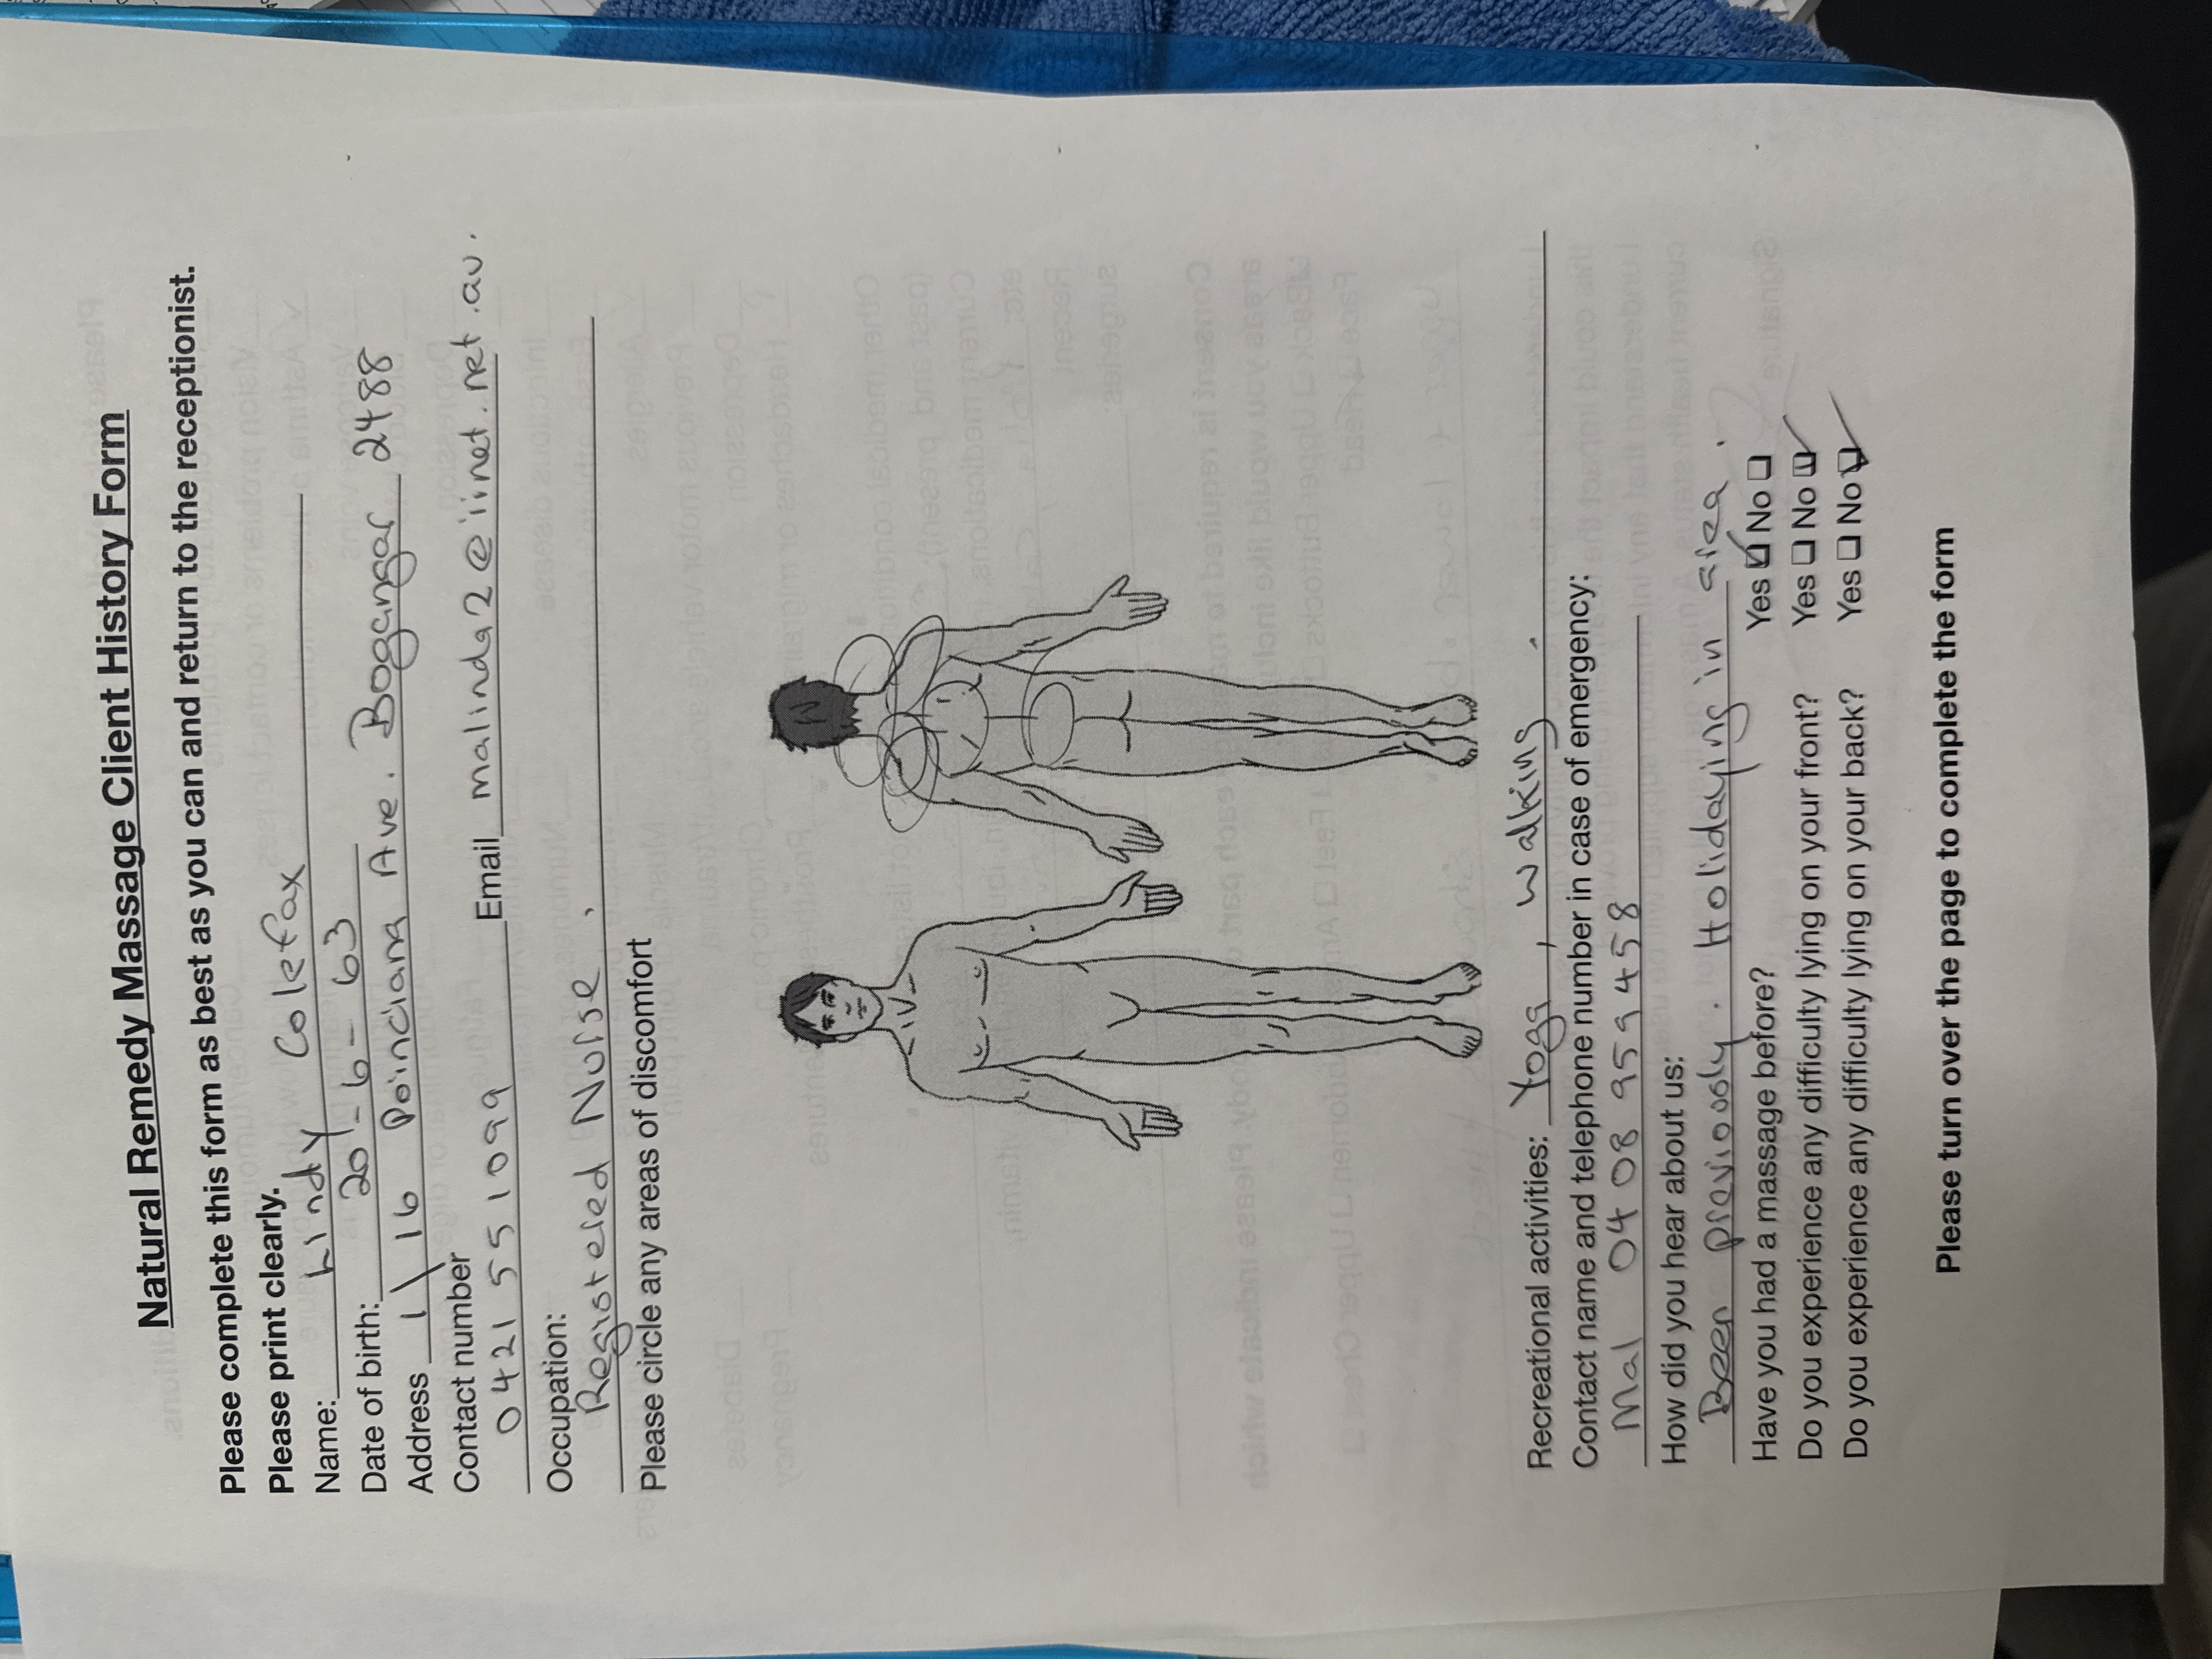 Natural Remedy Massage Client History Form
Please complete this form as best as you can and return to the receptionist.
Please print clearly.
Name: Lindy Colefax
Date of birth: 20-6-63
Address 1/16 Poinciana Ave. Bogangar 2488
Contact number
0421 551099 Email malinda2@iinet.net.au.
Occupation:
Registered Nurse.
Please circle any areas of discomfort
Recreational activities: Yoga, walking.
Contact name and telephone number in case of emergency:
Mal 0408 959458
How did you hear about us:
Been previously. Holidaying in area.
Have you had a massage before? Yes ☑ No ☐
Do you experience any difficulty lying on your front? Yes ☐ No ☑
Do you experience any difficulty lying on your back? Yes ☐ No ☑
Please turn over the page to complete the form